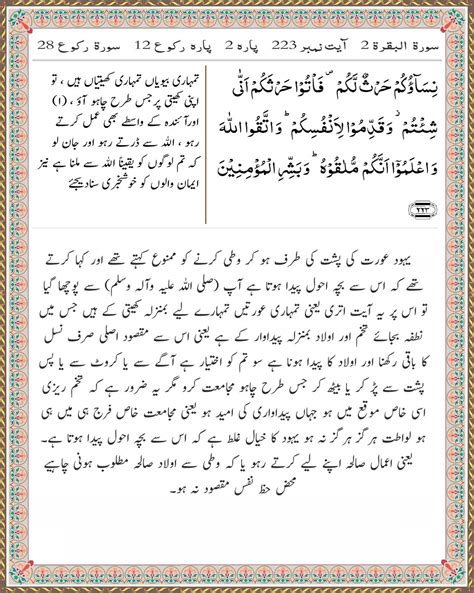 سورة البقرة 2 آیت نمبر 223 پارہ 2 پارہ رکوع 12 سورة رکوع 28
نِسَآؤُكُمْ حَرْثٌ لَّكُمْ ۪ فَاْتُوْا حَرْثَكُمْ اَنّٰى
شِئْتُمْ ۫ وَقَدِّمُوْا لِاَنْفُسِكُمْ ؕ وَاتَّقُوا اللّٰهَ
وَاعْلَمُوْٓا اَنَّكُمْ مُّلٰقُوْهُ ؕ وَبَشِّرِ الْمُؤْمِنِيْنَ
۲۲۳
تمہاری بیویاں تمہاری کھیتیاں ہیں ، تو
اپنی کھیتی پر جس طرح چاہو آؤ ، (۱)
اور آئندہ کے واسطے بھی عمل کرتے
رہو ، اللہ سے ڈرتے رہو اور جان لو
کہ تم لوگوں کو یقینًا اللہ سے ملنا ہے نیز
ایمان والوں کو خوشخبری سنا دیجئے
یہود عورت کی پشت کی طرف ہو کر وطی کرنے کو ممنوع کہتے تھے اور کہا کرتے
تھے کہ اس سے بچہ احول پیدا ہوتا ہے آپ (صلی اللہ علیہ وآلہ وسلم) سے پوچھا گیا
تو اس پر یہ آیت اتری یعنی تمہاری عورتیں تمہارے لیے بمنزلہ کھیتی کے ہیں جس میں
نطفہ بجائے تخم اور اولاد بمنزلہ پیداوار کے ہے یعنی اس سے مقصود اصلی صرف نسل
کا باقی رکھنا اور اولاد کا پیدا ہونا ہے سو تم کو اختیار ہے آگے سے یا کروٹ سے یا پس
پشت سے پڑ کر یا بیٹھ کر جس طرح چاہو مجامعت کرو مگر یہ ضرور ہے کہ تخم ریزی
اسی خاص موقع میں ہو جہاں پیداواری کی امید ہو یعنی مجامعت خاص فرج ہی میں ہی
ہو لواطت ہرگز ہرگز نہ ہو یہود کا خیال غلط ہے کہ اس سے بچہ احول پیدا ہوتا ہے۔
یعنی اعمال صالحہ اپنے لیے کرتے رہو یا کہ وطی سے اولاد صالحہ مطلوب ہونی چاہیے
محض حظ نفس مقصود نہ ہو۔